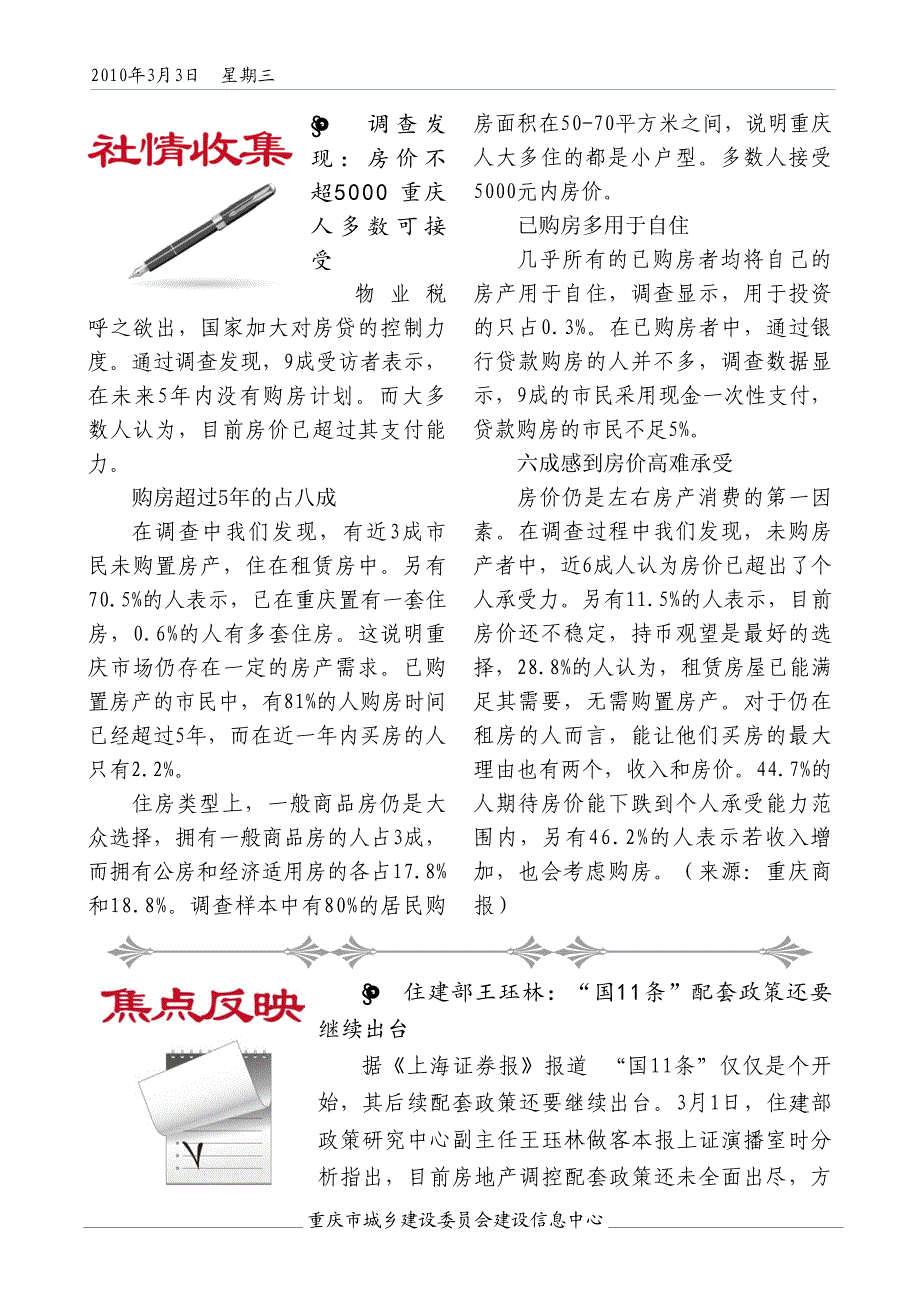 2010年3月3日 星期三
社情收集
调查发
现：房价不
超5000 重庆
人多数可接
受
物业税
呼之欲出，国家加大对房贷的控制力
度。通过调查发现，9成受访者表示，
在未来5年内没有购房计划。而大多
数人认为，目前房价已超过其支付能
力。
购房超过5年的占八成
在调查中我们发现，有近3成市
民未购置房产，住在租赁房中。另有
70.5%的人表示，已在重庆置有一套住
房，0.6%的人有多套住房。这说明重
庆市场仍存在一定的房产需求。已购
置房产的市民中，有81%的人购房时间
已经超过5年，而在近一年内买房的人
只有2.2%。
住房类型上，一般商品房仍是大
众选择，拥有一般商品房的人占3成，
而拥有公房和经济适用房的各占17.8%
和18.8%。调查样本中有80%的居民购
房面积在50-70平方米之间，说明重庆
人大多住的都是小户型。多数人接受
5000元内房价。
已购房多用于自住
几乎所有的已购房者均将自己的
房产用于自住，调查显示，用于投资
的只占0.3%。在已购房者中，通过银
行贷款购房的人并不多，调查数据显
示，9成的市民采用现金一次性支付，
贷款购房的市民不足5%。
六成感到房价高难承受
房价仍是左右房产消费的第一因
素。在调查过程中我们发现，未购房
产者中，近6成人认为房价已超出了个
人承受力。另有11.5%的人表示，目前
房价还不稳定，持币观望是最好的选
择，28.8%的人认为，租赁房屋已能满
足其需要，无需购置房产。对于仍在
租房的人而言，能让他们买房的最大
理由也有两个，收入和房价。44.7%的
人期待房价能下跌到个人承受能力范
围内，另有46.2%的人表示若收入增
加，也会考虑购房。（来源：重庆商
报）
焦点反映
住建部王珏林：“国11条”配套政策还要
继续出台
据《上海证券报》报道 “国11条”仅仅是个开
始，其后续配套政策还要继续出台。3月1日，住建部
政策研究中心副主任王珏林做客本报上证演播室时分
析指出，目前房地产调控配套政策还未全面出尽，方
重庆市城乡建设委员会建设信息中心